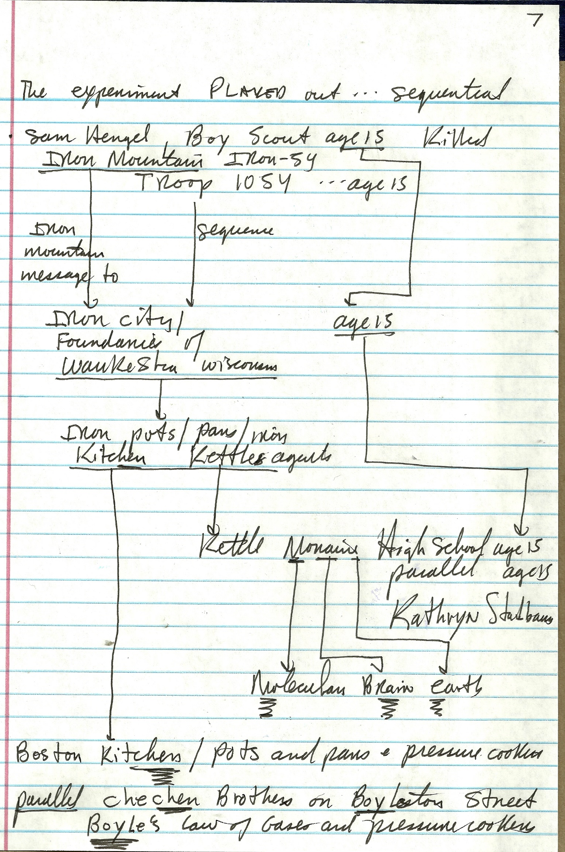 7
The experiment PLAYED out ... sequential
. Sam Hengel, Boy Scout age 15 Killed
Iron Mountain Iron-54
Troop 1054 ... age 15
Iron
mountain
message to
sequence
Iron city/
Foundaries of
Waukesha wisconsin
age 15
Iron pots/pans/iron
Kitchen Kettles agents
Kettle Moraine High School age 15
parallel age 15
Kathryn
Molecular Brain earth
Boston Kitchens / pots and pans + pressure cookers
parallel chechen Brothers on Boyleston Street
Boyle's Law of Gases and pressure cookers